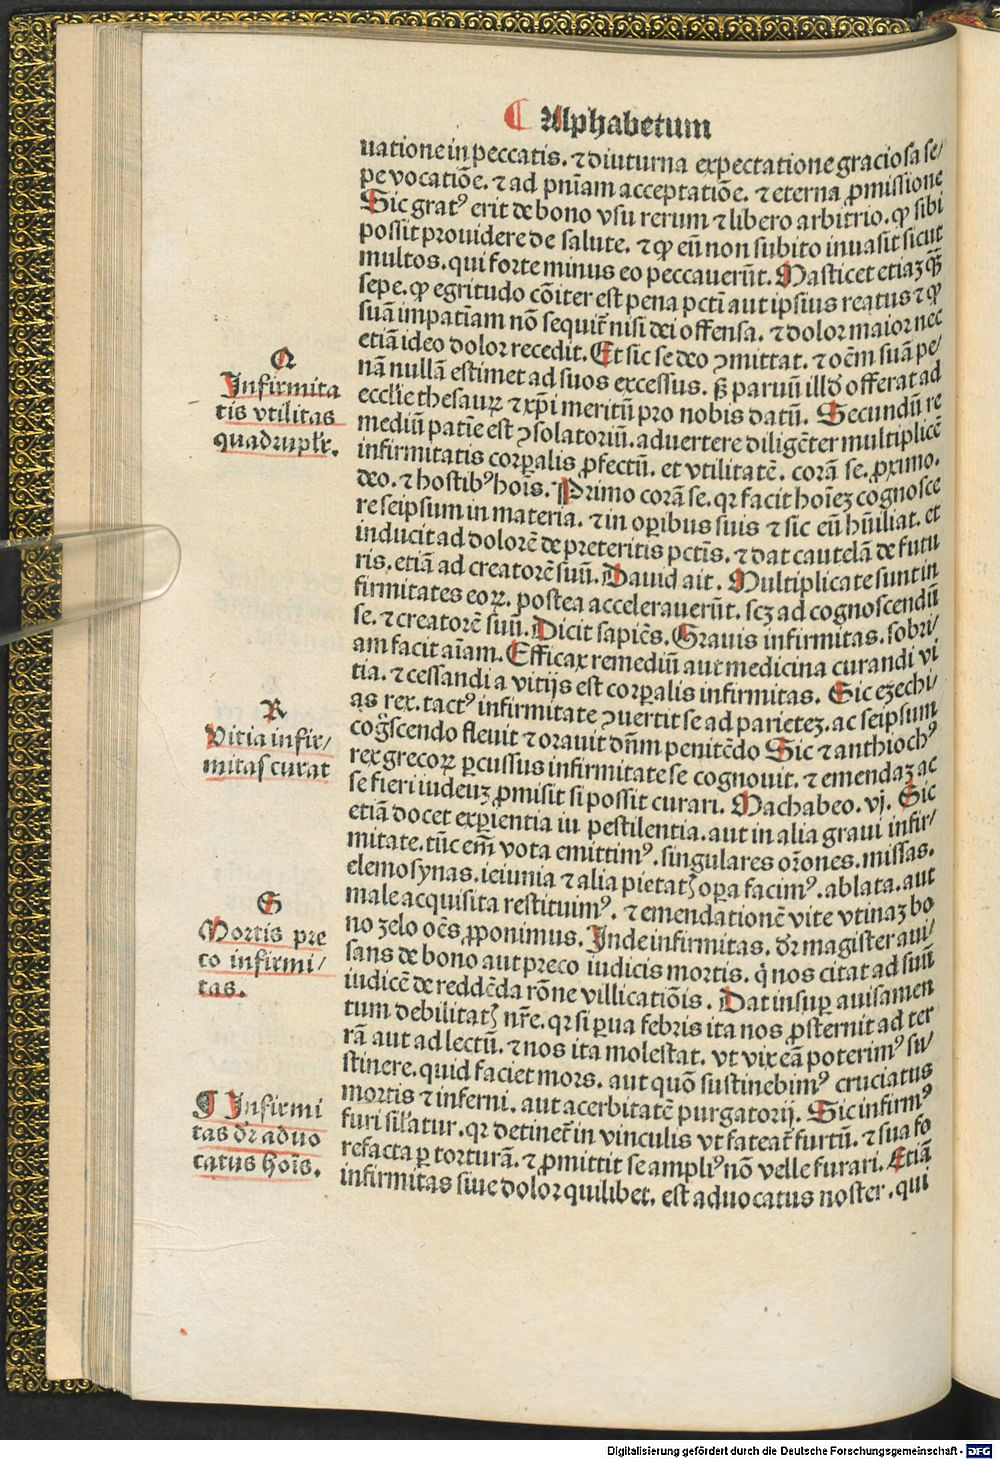 ⸿ Alphabetum
uatione in peccatis. ⁊ diuturna expectatione graciosa se/
pe vocatiõe. ⁊ ad pnĩam acceptatiõe. ⁊ eterna ꝓmissione
Sic gratꝰ erit de bono vsu rerum ⁊ libero arbitrio. ꝙ sibi
possit prouidere de salute. ⁊ ꝙ eũ non subito inuasit sicut
multos. qui forte minus eo peccauerũt. Masticet etiaꝫ ꝙ̃
sepe. ꝙ egritudo cõiter est pena pctĩ aut ipsius reatus ⁊ ꝙ
suã impatiẽam nõ sequit᷑ nisi dei offensa. ⁊ dolor maior nec
etiã ideo dolor recedit. Et sic se deo ꝯmittat. ⁊ oẽm suã pe/
nã nullã estimet ad suos excessus. sꝫ paruũ illd̕ offerat ad
ecclĩe thesauꝝ ⁊ xp̃i meritũ pro nobis datũ. Secundũ re
mediũ patiẽ est ꝯsolatoriũ. aduertere diligẽter multiplicẽ
infirmitatis corꝑalis ꝓfectũ. et vtilitatẽ. corã se. ꝓximo.
deo. ⁊ hostibꝰ hoĩs. Primo corã se. qꝛ facit hoĩeꝫ cognosce
re seipsum in materia. ⁊ in oꝑibus suis ⁊ sic eũ hũiliat. et
inducit ad dolorẽ de preteritis pctĩs. ⁊ dat cautelã de futu
ris. etiã ad creatorẽ suũ. Dauid ait. Multiplicate sunt in
firmitates eoꝝ. postea accelerauerũt. scꝫ ad cognoscendũ
se. ⁊ creatorẽ suũ. Dicit sapiẽs. Grauis infirmitas. sobri/
am facit aĩam. Efficax remediũ aut medicina curandi vi
tia. ⁊ cessandi a vitijs est corꝑalis infirmitas. Sic eꝫechi/
as rex. tactꝰ infirmitate ꝯuertit se ad parieteꝫ. ac seipsum
cog̃scendo fleuit ⁊ orauit dñm penitẽdo Sic ⁊ anthiochꝰ
rex grecoꝝ ꝑcussus infirmitate se cognouit. ⁊ emendaꝫ ac
se fieri iudeuꝫ ꝓmisit si possit curari. Machabeo. vj. Sic
etiã docet exꝑientia in pestilentia. aut in alia graui infir/
mitate. tũc em̃ vota emittimꝰ. singulares orõnes. missas.
elemosynas. ieiunia ⁊ alia pietatꝭ oꝑa facimꝰ. ablata. aut
male acquisita restituimꝰ. ⁊ emendationẽ vite vtinaꝫ bo
no ꝫelo oẽs ꝓponimus. Inde infirmitas. dr̃ magister aui/
sans de bono aut preco iudicis mortis. q̇ nos citat ad suũ
iudicẽ de reddẽda rõne villicatiõis. Dat insuꝑ auisamen
tum debilitatꝭ nr̃e. qꝛ si ꝑua febris ita nos ꝓsternit ad ter
rã aut ad lectũ. ⁊ nos ita molestat. vt vix eã poterimꝰ su/
stinere. quid faciet mors. aut quõ sustinebimꝰ cruciatus
mortis ⁊ inferni. aut acerbitatẽ purgatorij. Sic infirmꝰ
furi sil̃atur. qꝛ detinet᷑ in vinculis vt fateat᷑ furtũ. ⁊ sua fo
refacta ꝑ torturã. ⁊ ꝓmittit se ampliꝰ nõ velle furari. Etiã
infirmitas siue dolor quilibet. est aduocatus noster. qui
Q
Infirmita
tis vtilitas
quadruplr̃.
R
Vitia infir/
mitas curat
S
Mortis pre
co infirmi/
tas.
⸿ Infirmi
tas dr̃ aduo
catus hoĩs.
Digitalisierung gefördert durch die Deutsche Forschungsgemeinschaft - DFG